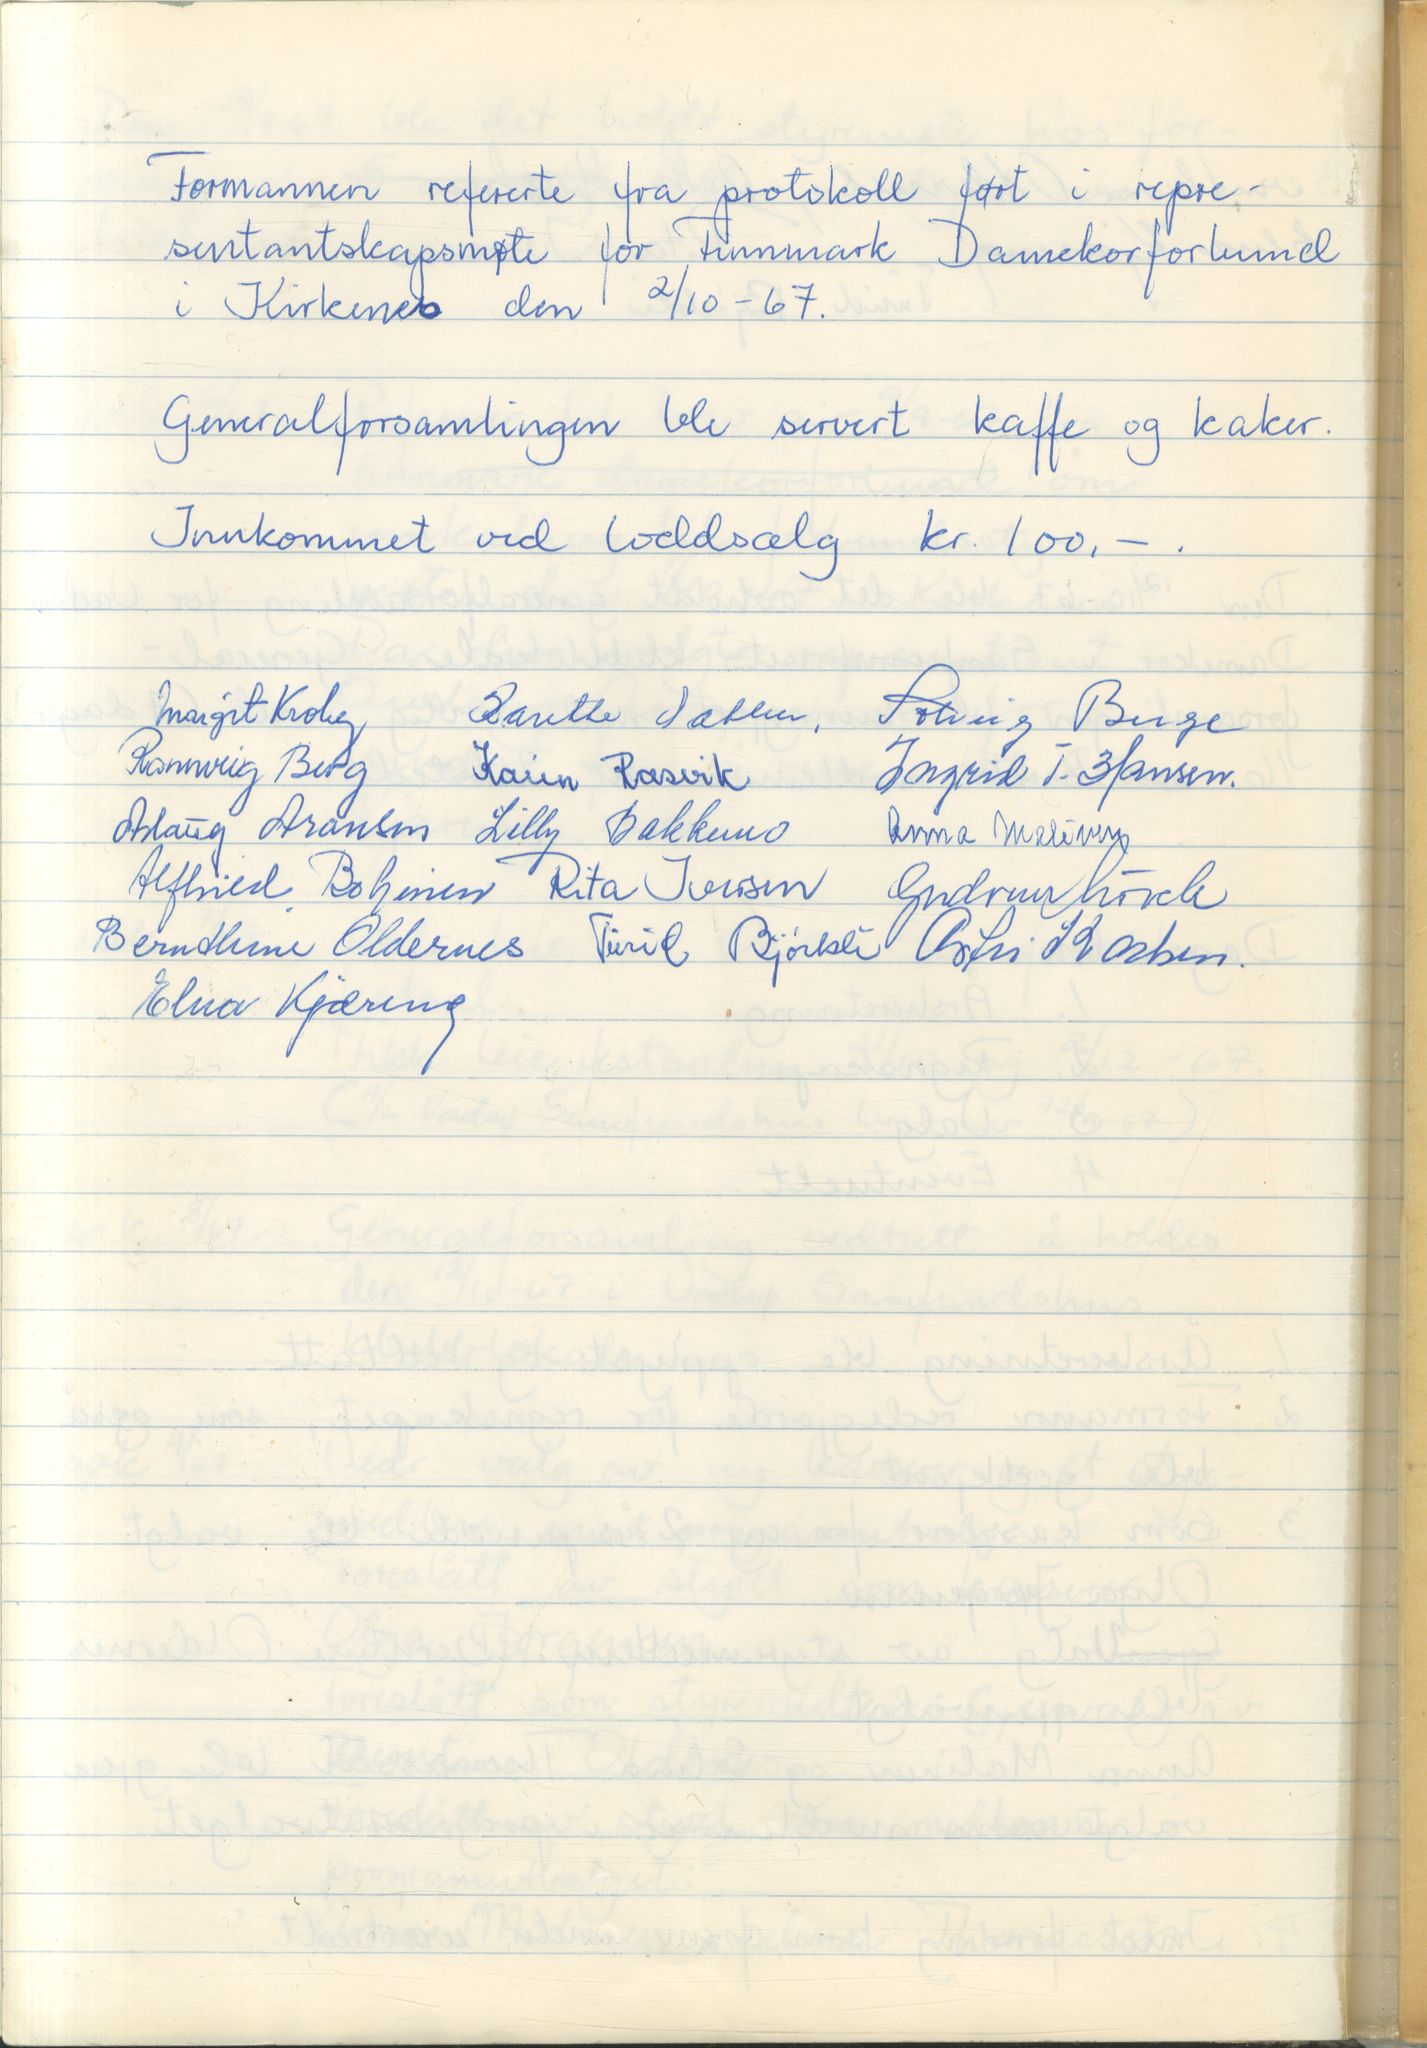 Formannen refererte fra protokoll ført i repre-
sentantskapsmøte for Finnmark Damekorforbund
i Kirkenes den 2/10-67.
Generalforsamlingen ble servert kaffe og kaker.
Innkommet ved loddsalg kr. 100,-.
Margit Kroly Solveig Berge
Rannveig Berg Karen Rasvik Ingrid T. Hansen.
Aslaug Aronsen Lilly Bakkeno Anna Malinen
Alfhild Bohinen Rita Iversen Gudrun
Berndtine Oldernes Turid Bjørkli
Elna Kjæreng